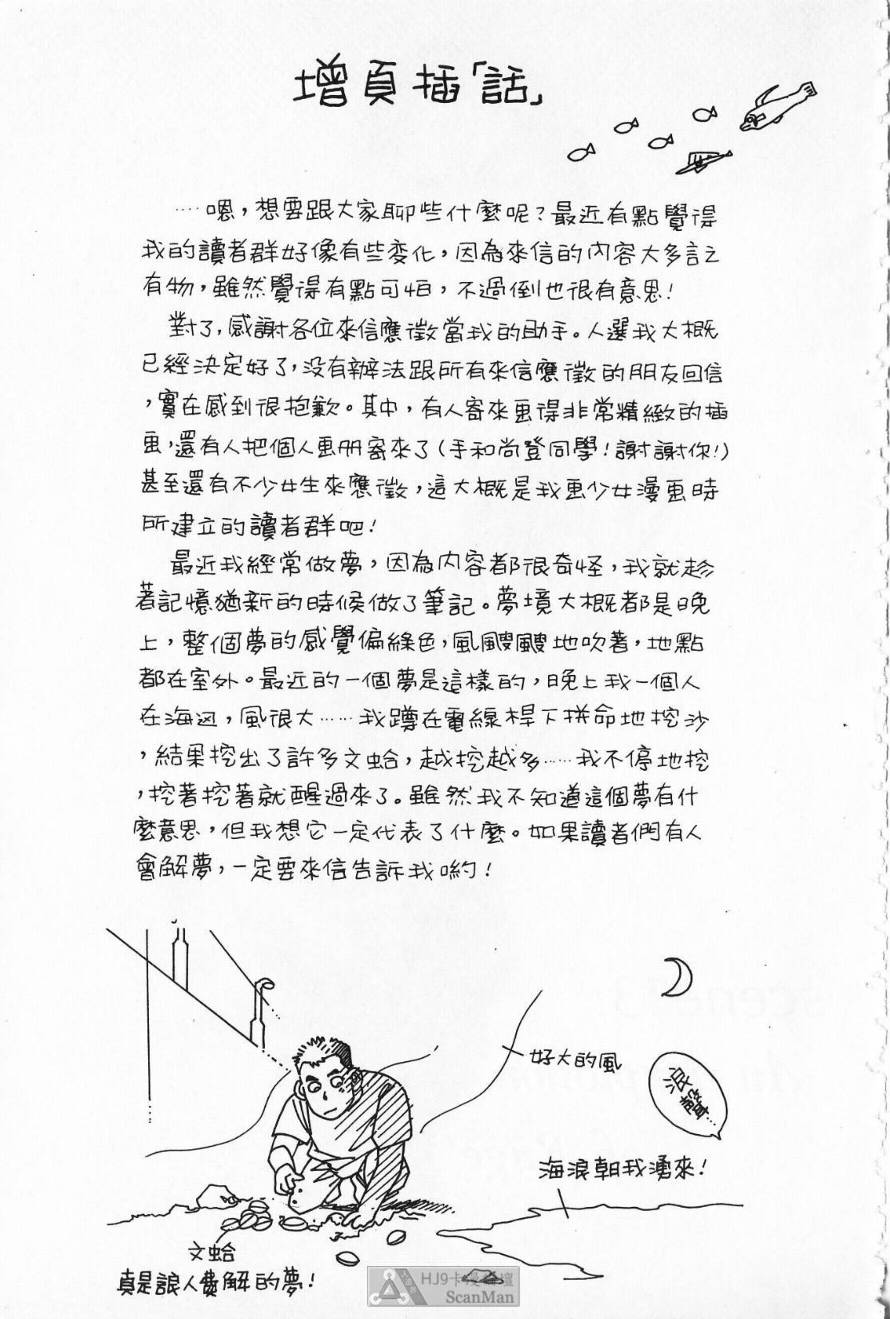 增頁插「話」
……嗯，想要跟大家聊些什麼呢？最近有點覺得
我的讀者群好像有些变化，因為來信的內容大多言之
有物，雖然覺得有點可怕，不過倒也很有意思！
對了，感謝各位來信應徵當我的助手。人選我大概
已經決定好了，沒有辦法跟所有來信應徵的朋友回信
，實在感到很抱歉。其中，有人寄來画得非常精緻的插
画，還有人把個人画册寄來了（手和尚登同學！謝謝你！）
甚至還有不少女生來應徵，這大概是我画少女漫画時
所建立的讀者群吧！
最近我經常做夢，因為內容都很奇怪，我就趁
著記憶猶新的時候做了筆記。夢境大概都是晚
上，整個夢的感覺偏綠色，風颼颼地吹著，地點
都在室外。最近的一個夢是這樣的，晚上我一個人
在海边，風很大……我蹲在電線桿下拼命地挖沙
，結果挖出了許多文蛤，越挖越多……我不停地挖
，挖著挖著就醒過來了。雖然我不知道這個夢有什
麼意思，但我想它一定代表了什麼。如果讀者們有人
會解夢，一定要來信告訴我喲！
好大的風
浪聲…
海浪朝我湧來！
文蛤
真是讓人費解的夢！
HJ9卡漫論壇
ScanMan